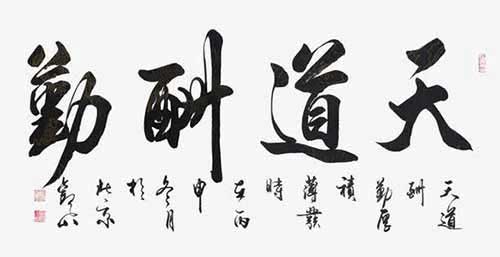 天道酬勤
天道
酬
勤厚
積
薄發
時
在丙
申
冬月
於
北京